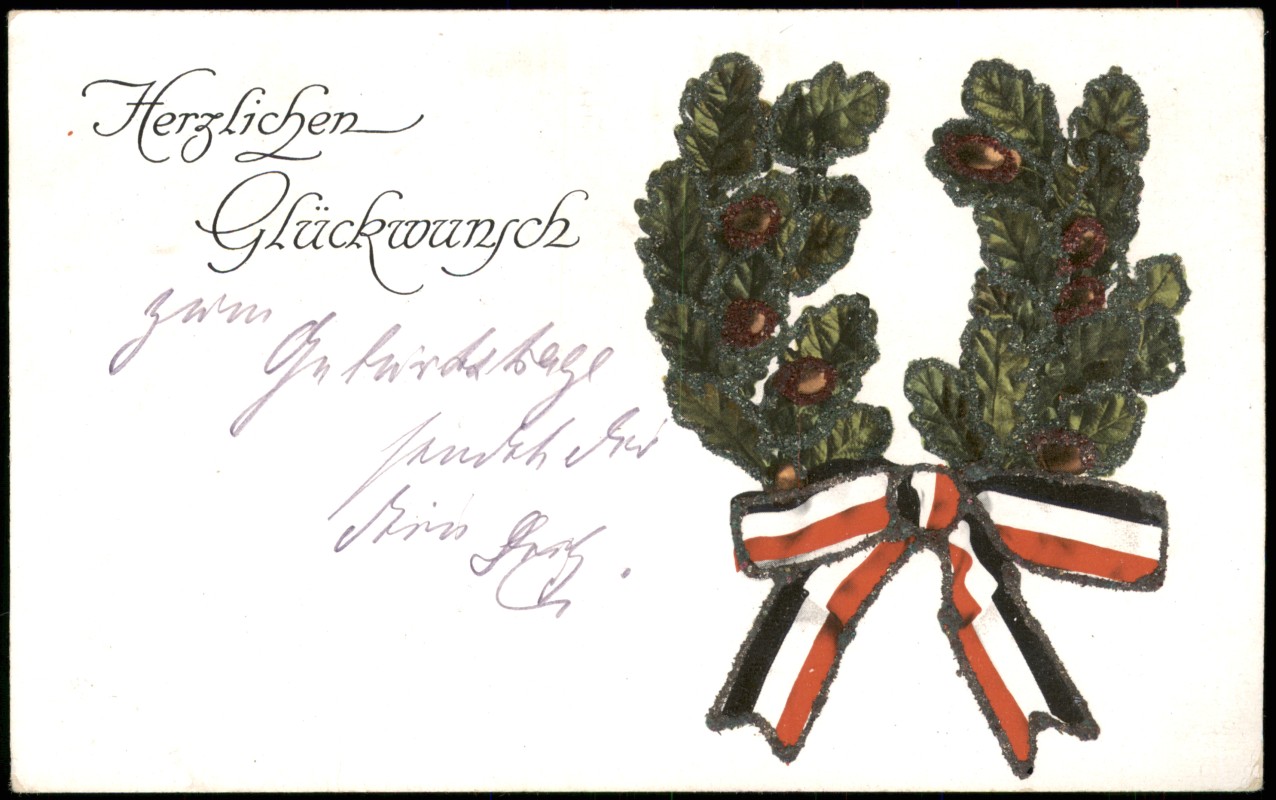 Herzlichen
Glückwunsch
zum
Geburtstage
sendet dir
dein